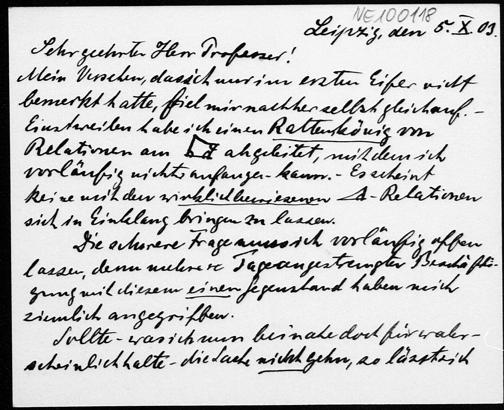 NE100118
Leipzig, den 5. X. 03.
Sehr geehrter Herr Professor!
Mein Versehen, dass ich nur im ersten Eifer nicht
bemerkt hatte, fiel mir nachher selbst gleich auf. –
Einstweilen habe ich einen Rattenkönig von
Relationen am abgeleitet, mit dem ich
vorläufig nichts anfangen kann. – Es scheint
keine mit den wirklich bewiesenen Δ-Relationen
sich in Einklang bringen zu lassen.
Die schwere Frage muss ich vorläufig offen
lassen, denn mehrere Tage angestrengter Beschäfti-
gung mit diesem einen Gegenstand haben mich
ziemlich angegriffen.
Sollte – was ich nun beinahe doch für wahr-
scheinlich halte – die Sache nicht gehn, so lässt sich